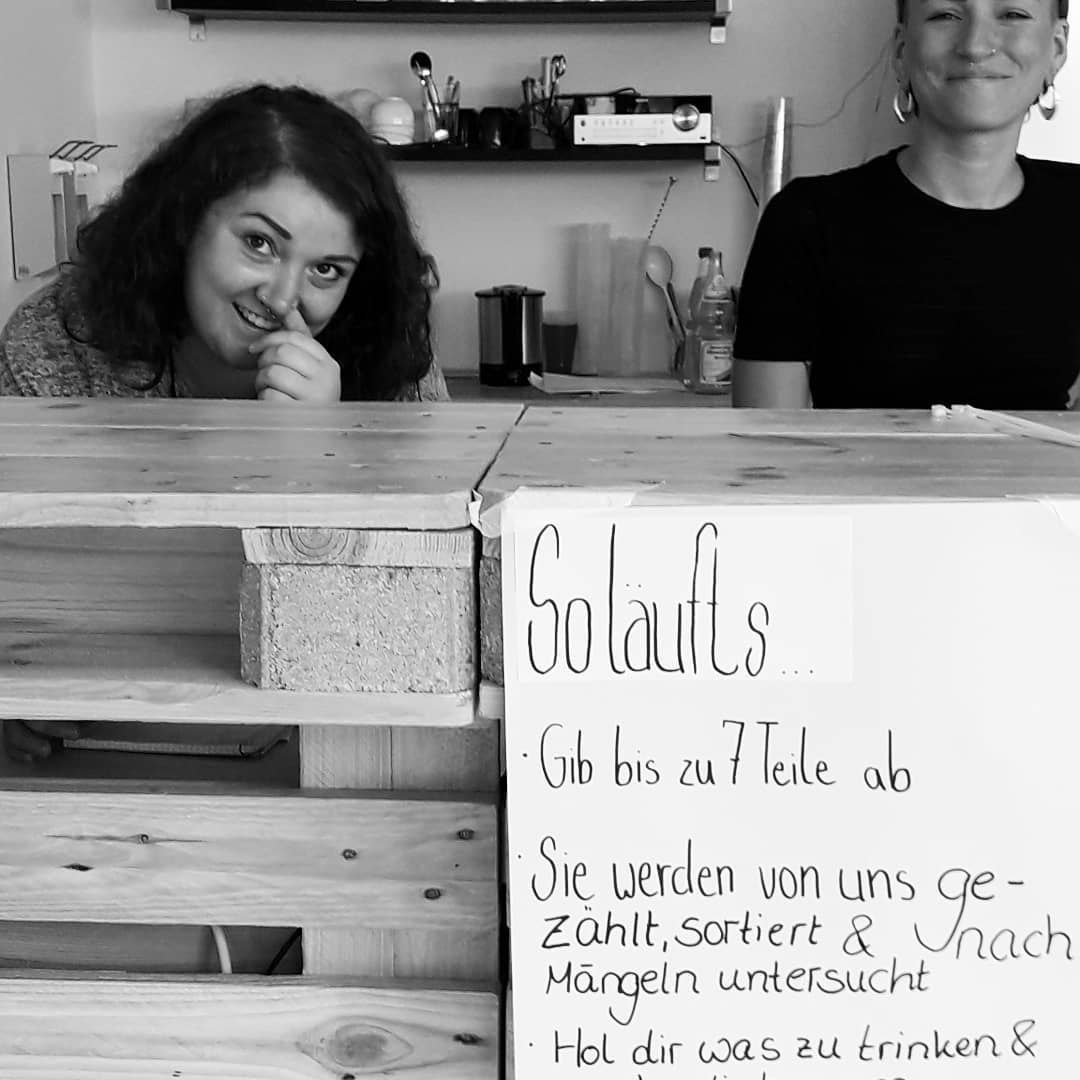 So läufts...
· Gib bis zu 7 Teile ab
· Sie werden von uns ge-
zählt, sortiert & nach
Mängeln untersucht
· Hol dir was zu trinken &